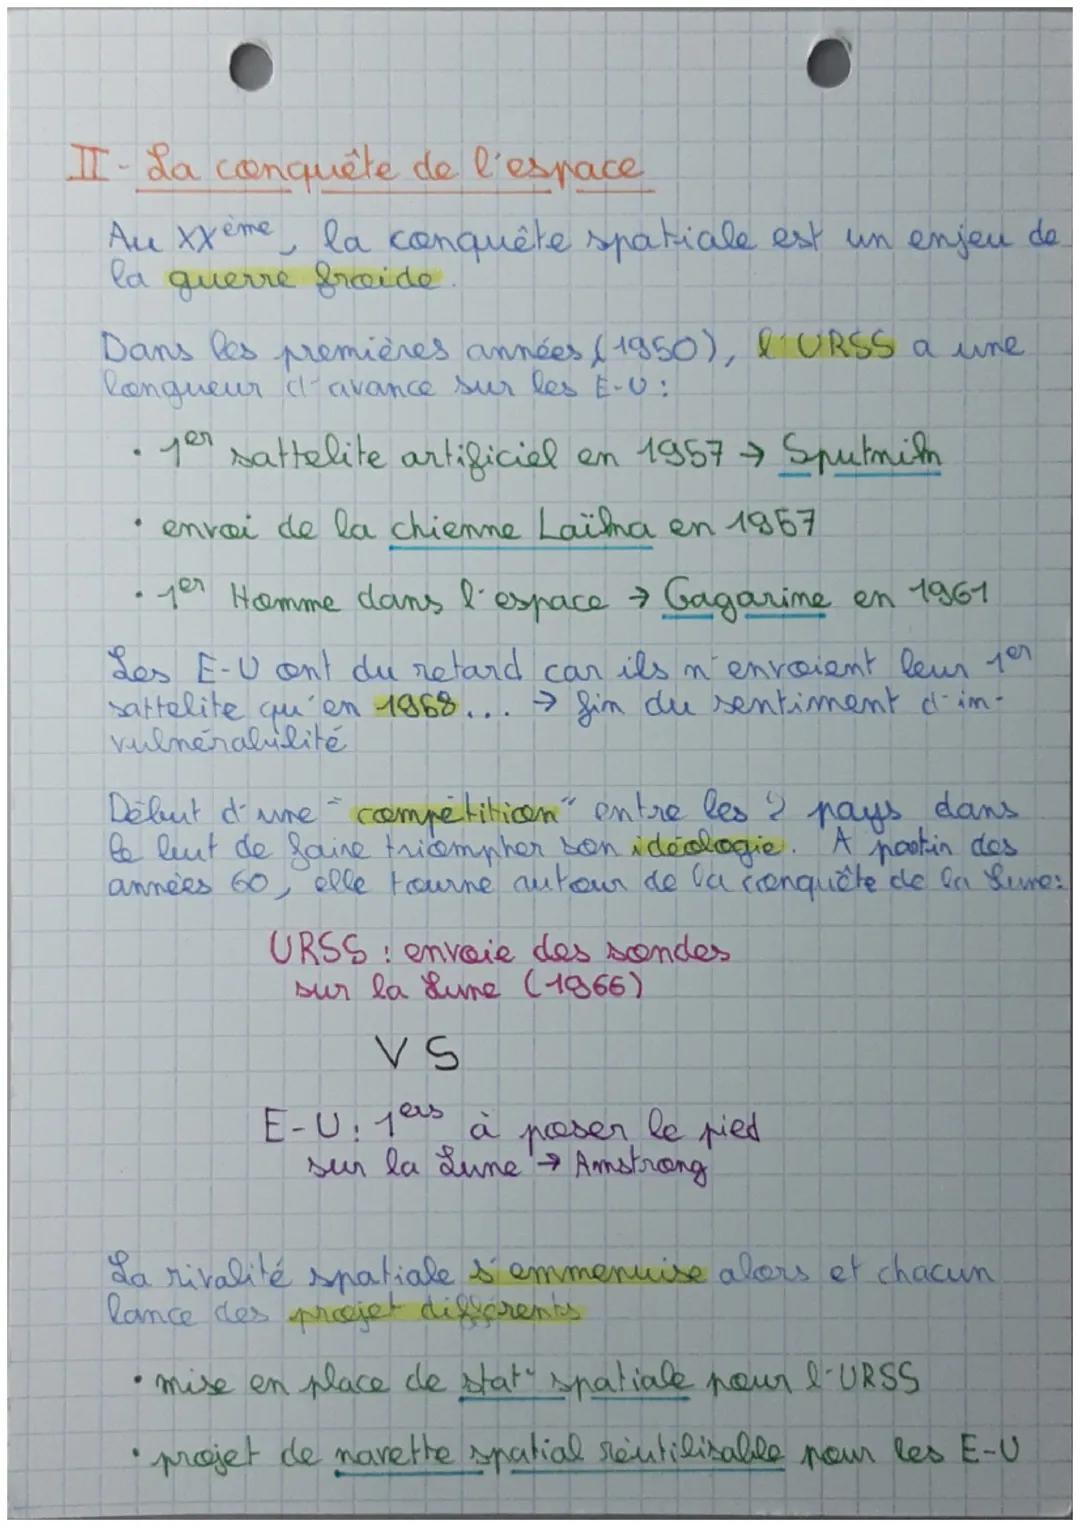 II - La conquête de l'espace
Au XXème, la conquête spatiale est un enjeu de
la guerre froide.
Dans les premières années (1950), l'URSS a une
longueur d'avance sur les E-U :
• 1er sattelite artificiel en 1957 → Sputnik
• envoi de la chienne Laïka en 1957
• 1er Homme dans l'espace → Gagarine en 1961
Les E-U ont du retard car ils n'envoient leur 1er
sattelite qu'en 1958... → fin du sentiment d'in-
vulnérabilité
Début d'une "compétition" entre les 2 pays dans
le but de faire triompher son idéologie. A partir des
années 60, elle tourne autour de la conquête de la Lune:
URSS : envoie des sondes
sur la Lune (1966)
VS
E-U : 1ers à poser le pied
sur la Lune → Amstrong
La rivalité spatiale s'emmenuise alors et chacun
lance des projet différents
• mise en place de stat° spatiale pour l'URSS
• projet de navette spatial réutilisable pour les E-U